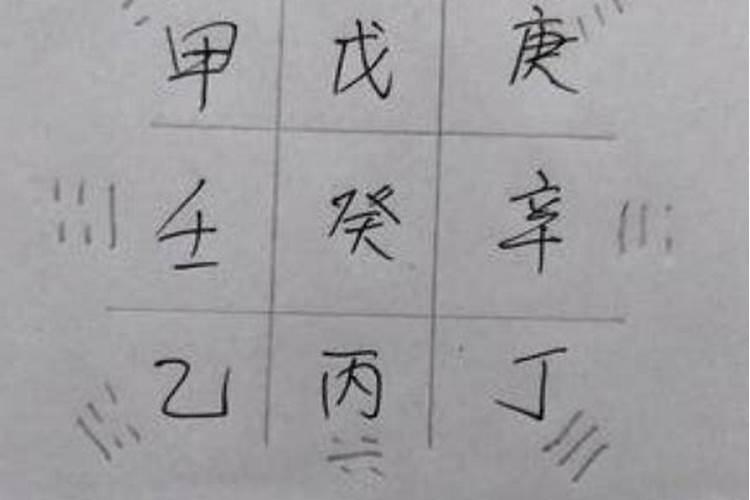 甲 戊 庚
壬 癸 辛
乙 丙 丁